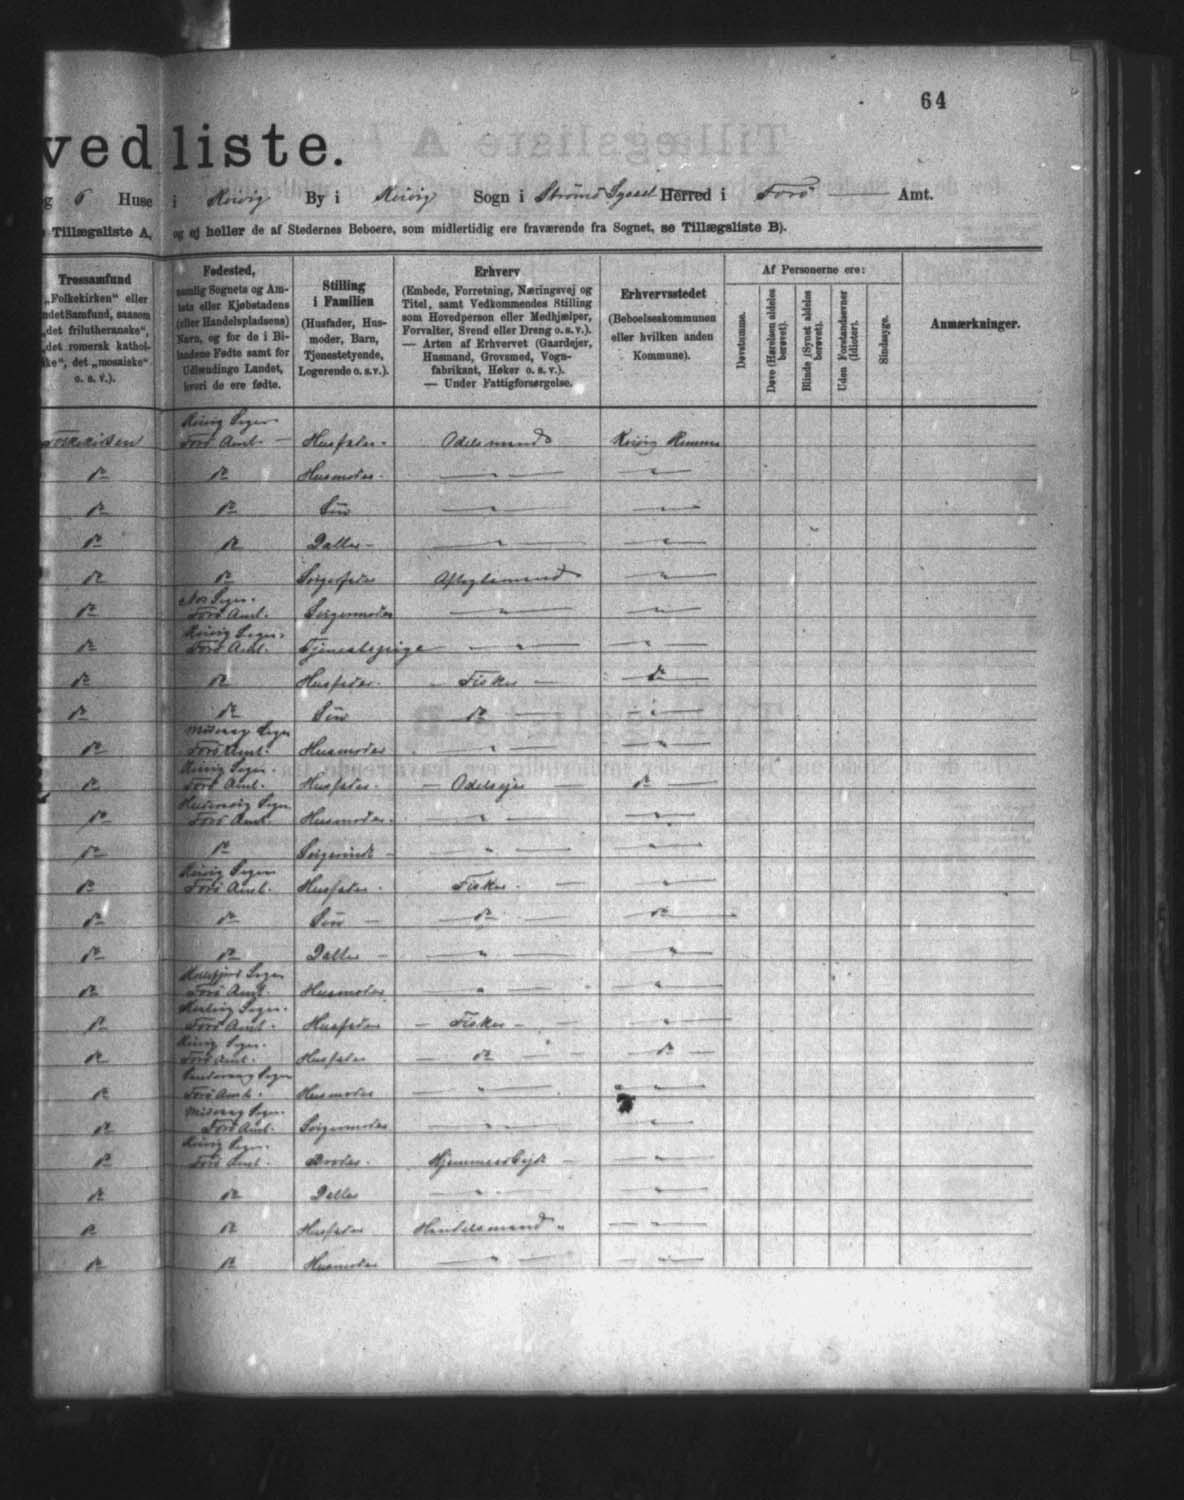 64
vedliste.
6 Huse i Kvivig By i Kvivig Sogn i Strömö Syssel Herred i Forö Amt.
Tillægsliste A, og ej heller de af Stedernes Beboere, som midlertidig ere fraværende fra Sognet, se Tillægsliste B).
Trossamfund
„Folkekirken" eller
ndet Samfund, saasom
„det frilutheranske",
„det romersk kathol-
ke", det „mosaiske"
o. s. v.).
Fødested,
nemlig Sognets og Am-
tets eller Kjøbstadens
(eller Handelspladsens)
Navn, og for de i Bi-
landene Fødte samt for
Udlændinge Landet,
hvori de ere fødte.
Stilling
i Familien
(Husfader, Hus-
moder, Barn,
Tjenestetyende,
Logerende o. s. v.).
Erhverv
(Embede, Forretning, Næringsvej og
Titel, samt Vedkommendes Stilling
som Hovedperson eller Medhjælper,
Forvalter, Svend eller Dreng o. s. v.).
— Arten af Erhvervet (Gaardejer,
Husmand, Grovsmed, Vogn-
fabrikant, Høker o. s. v.).
— Under Fattigforsørgelse.
Erhvervsstedet
(Beboelseskommunen
eller hvilken anden
Kommune).
Af Personerne ere:
Døvstumme.
Døve (Hørelsen aldeles berøvet).
Blinde (Synet aldeles berøvet).
Uden Forstandsevner (Idioter).
Sindssyge.
Anmærkninger.
Kvivig Sogn
Folkekirken Forö Amt. Husfader. Odelsmand Kvivig Kommune
do do Husmoder. " "
do do Sön " "
do do Datter " "
do do Svigerfader Aftægtsmand "
Nes Sogn.
do Forö Amt. Svigermoder " "
Kvivig Sogn.
do Forö Amt. Tjenestepige " "
do do Husfader. Fisker do
do do Sön do "
Midvaag Sogn
do Forö Amt. Husmoder " "
Kvivig Sogn.
do Forö Amt. Husfader. Odelsejer do
Sogn
do Forö Amt. Husmoder. " "
do do " "
Kvivig Sogn
do Forö Amt. Husfader. Fisker. "
do do Sön do do
do do Datter " "
Sogn
do Forö Amt. Husmoder " "
Sogn.
do Forö Amt. Husfader Fisker "
Kvivig Sogn.
do Forö Amt. Husfader do do
Sandevaag Sogn
do Forö Amt. Husmoder " "
Midvaag Sogn.
do Forö Amt. Svigermoder " "
Kvivig Sogn.
do Forö Amt. Broder. "
do do Datter " "
do do Husfader Handelsmand "
do do Husmoder " "